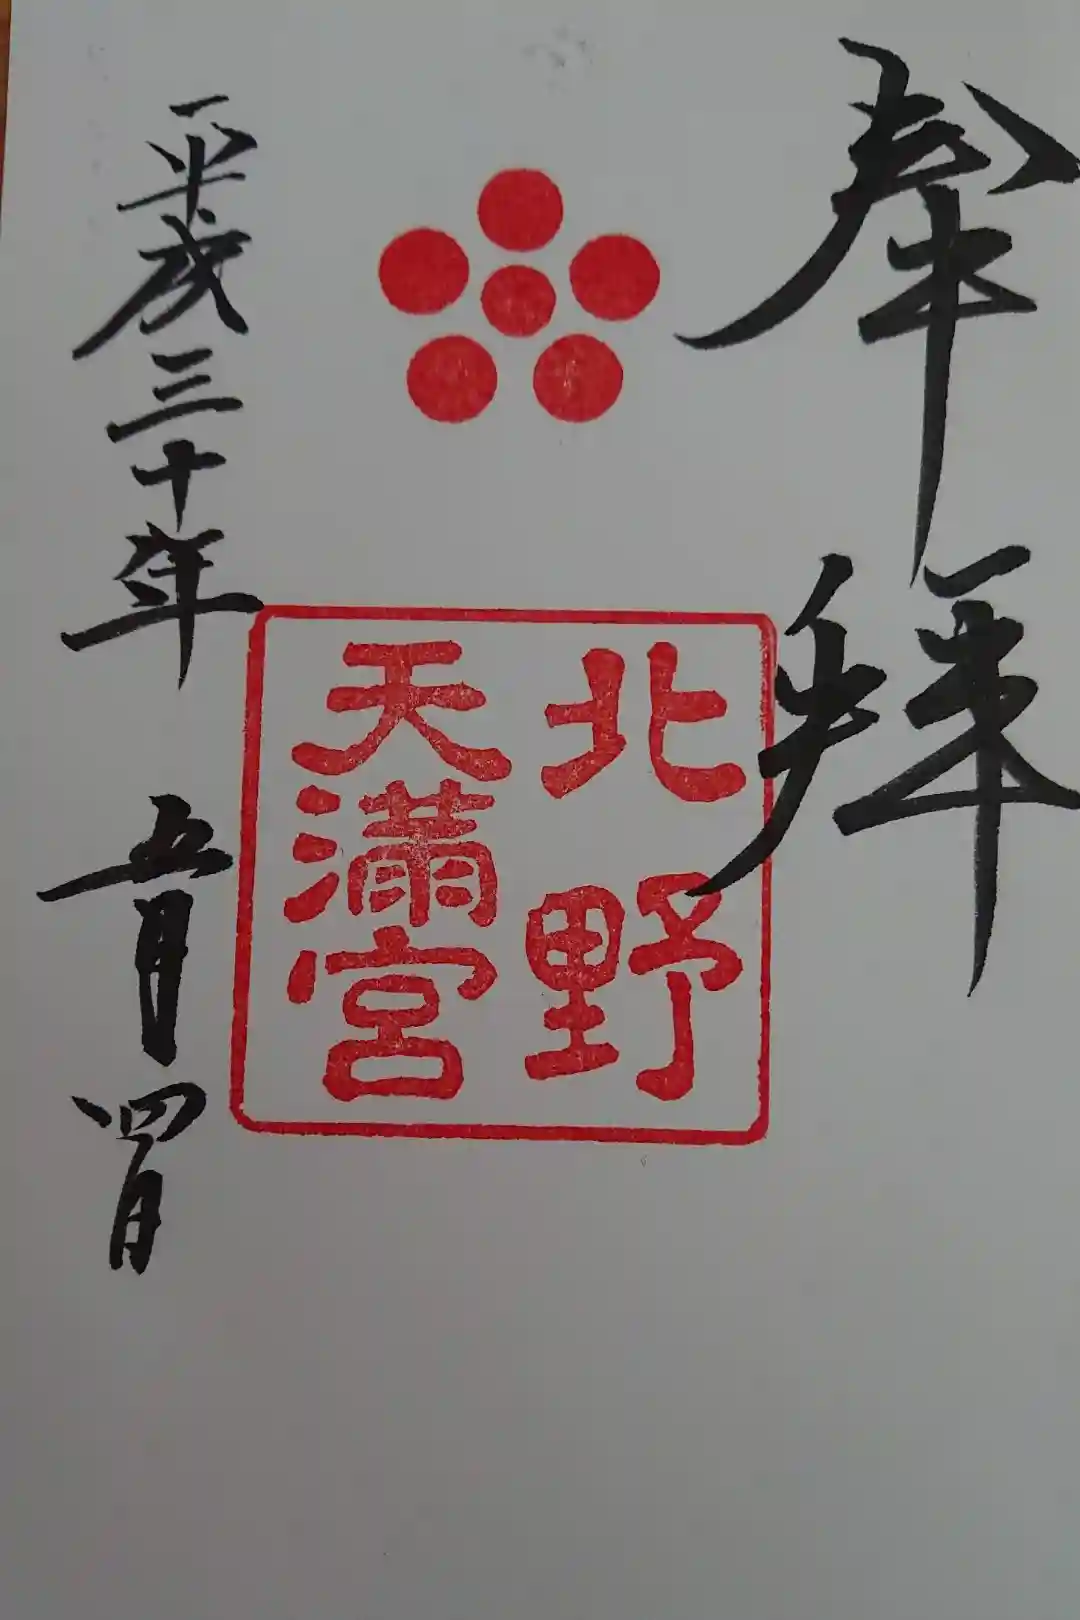 奉拝
北野
天満宮
平成三十年 五月四日